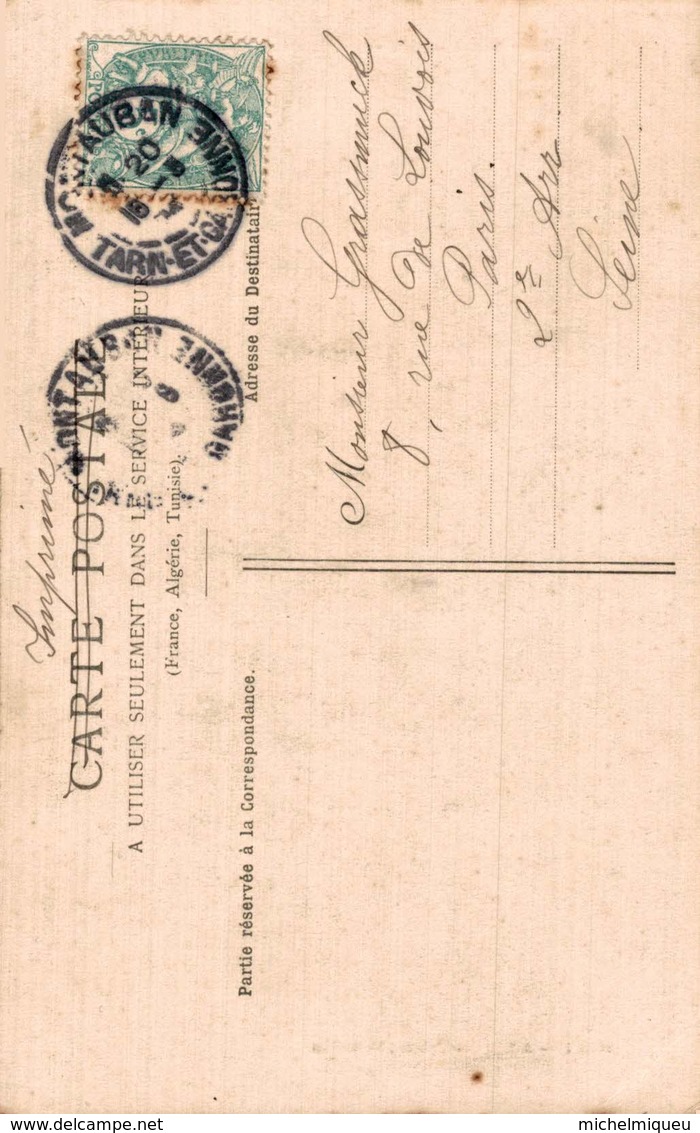 Imprimé
CARTE POSTALE
A UTILISER SEULEMENT DANS LE SERVICE INTÉRIEUR
(France, Algérie, Tunisie).
Partie réservée à la Correspondance.
Adresse du Destinatair
Monsieur Grassmuck
8, rue de Louvois
Paris.
2e Arr
Seine
MONTAUBAN
20
TARN-ET-GA
delcampe.net
michelmiqueu